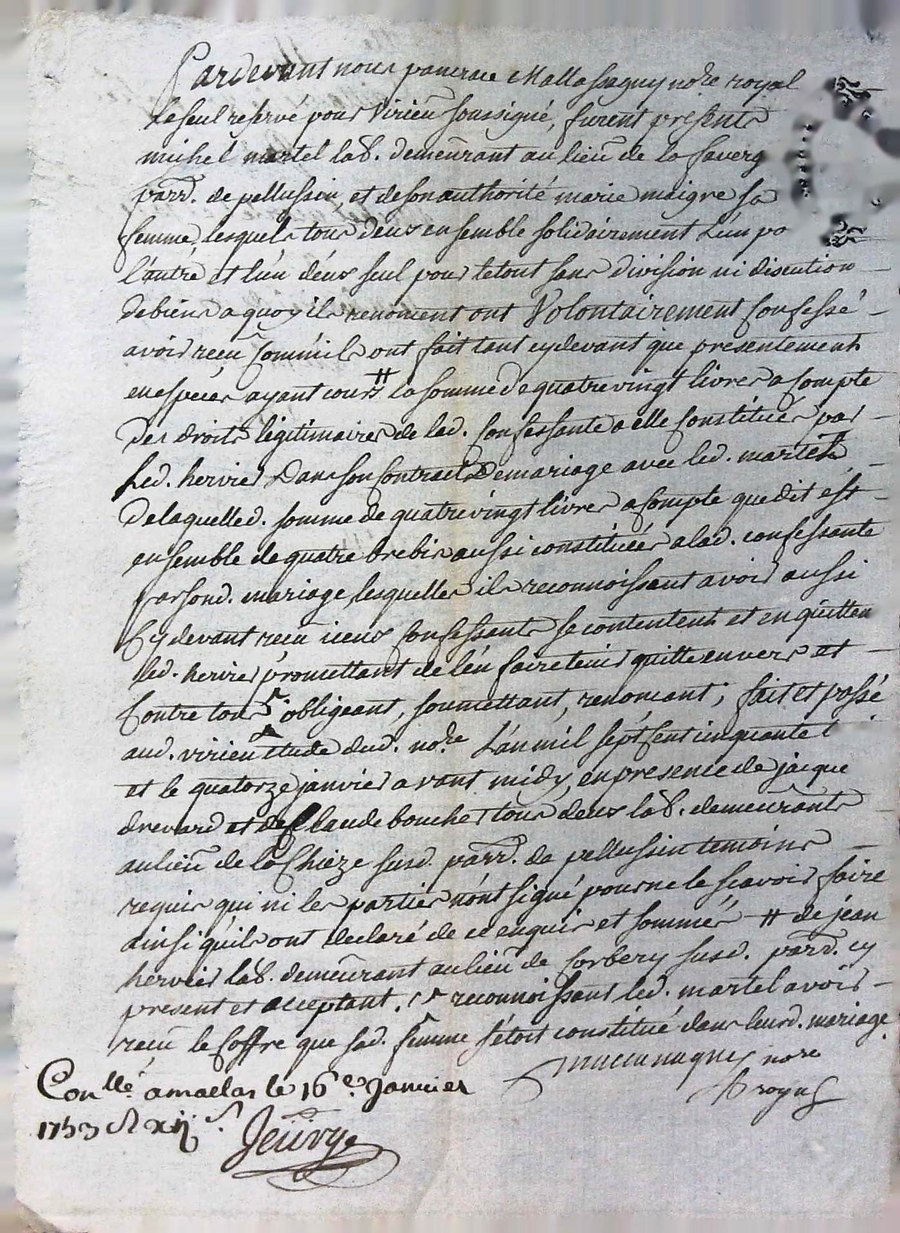 Pardevant nous pancrace Mallassagny nore royal
le seul reservé pour Virieu soussigné, furent presents
michel martel lab. demeurant au lieu de la faverg
parr. de pellussin, et de son authorité marie maigre sa
femme, lesquels tous deus ensemble solidairement l'un po
l'autre et l'un d'eus seul pour le tout sans division ni discution
de biens a quoy ils renoncent ont Volontairement Confessé
avoir receu Comm'ils ont fait tant cy devant que presentement
en espèces ayant cours # la somme de quatre vingt livres a Compte
des droits legitimaires de lad. Confessante a elle Constitués par
led. hervier dans son Contract de mariage avec led. martel
de laquelle d. somme de quatre vingt livres a Compte que dit est
ensemble de quatre brebis aussi constituées a lad. confessante
par sond. mariage, lesquelles ils reconnoissent avoir aussi
Cy devant receu iceus Confessants se contentent et en quittent
led. hervier promettant de l'en faire tenir quitte envers et
Contre tous obligeant, soumettant, renoncant; fait et passé
aud. virieu étude dud. nore. L'an mil sept cent cinquante t
et le quatorze janvier avant midy, en presence de jacque
drevard et de Claude boucher tous deus lab. demeurants
au lieu de la Chieze susd. parr. de pellussin temoins
requis qui ni les parties n'ont signé pour ne le scavoir faire
ainsi qu'ils ont declaré de ce enquis et sommés # de jean
hervier lab. demeurant au lieu de Corbery susd. parr. cy
present et acceptant. reconnoissant led. martel avoir
receu le Coffre que sad. femme s'étoit constitué dans leurd. mariage.
nore
royal
Conllé a maclas le 16e Janvier
1753 R xij s.
Jeüvy